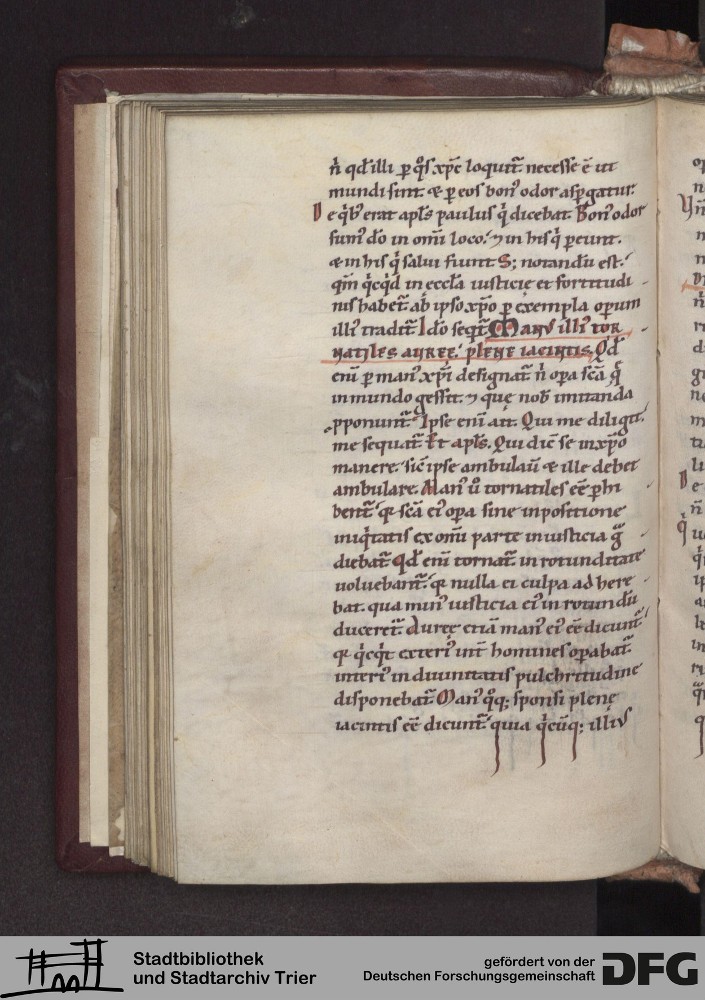 n̄ qđ illi ꝑ q°s xp̄c loquit᷑ necesse ē ut
mundi sint ⁊ ꝑ eos bon᾽ odor aspgatur.
De q̇b᾽ erat apl̄s paulus q̇ dicebat. Bon᾽ odor
sum᾽ dō in om̄i loco. ⁊ in his q̇ ꝑeunt.
& in his q̇ salui fiunt. S; notandū est.
qm̄ q̇cq̇d in eccl̄a iusticie et fortitudi
nis habet᷑ ab ipso xp̄o ꝑ exempla operum
illi᾽ tradit᷑. Ido seqt᷑. Man᾽ illi᾽ tor
natiles auree. plene iacintis. Qđ
eni ꝑ man᾽ xp̄i designat᷑ n̄ opa sc̄a q̄
in mundo gessit. ⁊ que nob̄ imitanda
pponunt᷑. Ipse eni ait. Qui me diligit.
me sequat᷑. Et apl̄s. Qui dic̄ se in xp̄o
manere. sic̄ ipse ambulau̅ & ille debet
ambulare. Man᾽ u̅ tornatiles ee̅ ꝑhi
bent᷑. q̇ sc̄a ei᾽ opa sine inpositione
iniq̇tatis ex om̄i parte in iusticia
diebat᷑. Qđ eni tornat᷑ in rotunditate
uoluebant᷑. q̇ nulla ei culpa adhere
bat. qua min᾽ iusticia ei᾽ in rotundū
duceret᷑. Auree etiā man᾽ ei᾽ ee̅ dicunt᷑
q̇ q̇cq̇t exteri᾽ int̄ homines opabat᷑
interi᾽ in diuinitatis pulchritudine
disponebat᷑. Man᾽ q°q; sponsi plene
iacintis ee̅ dicunt᷑. quia q̇cūq; illius
Stadtbibliothek
und Stadtarchiv Trier
gefördert von der
Deutschen Forschungsgemeinschaft
DFG